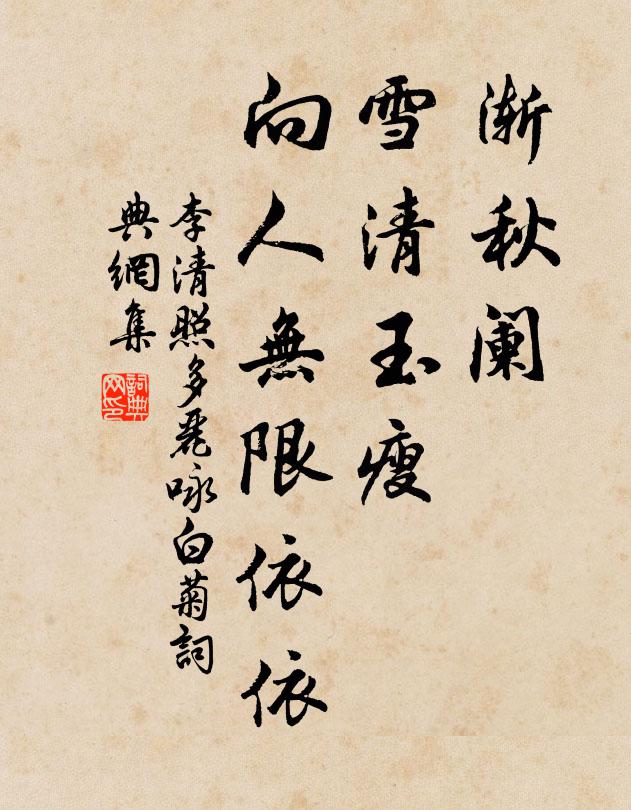 渐秋阑
雪清玉瘦
向人無限依依
李清照多麗咏白菊詞
典網集
詞典网印